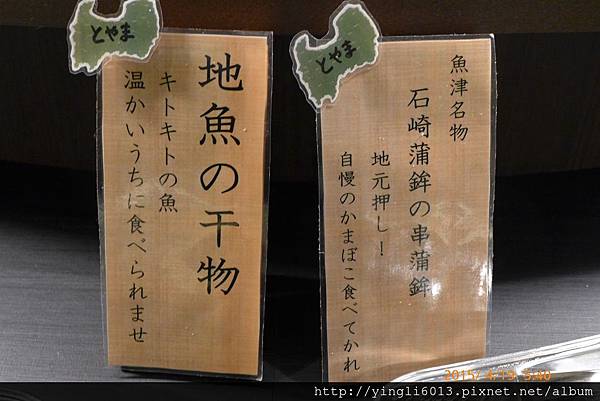 とやま
地魚の干物
キトキトの魚
温かいうちに食べられませ
とやま
魚津名物
石崎蒲鉾の串蒲鉾
地元押し！
自慢のかまぼこ食べてかれ
2015/ 4/19 5:40
http://yingli6013.pixnet.net/album